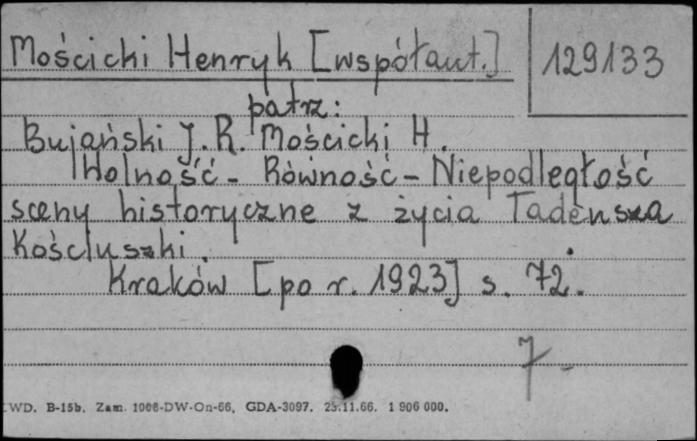 Mościcki Henryk [współaut.]
129133
patrz:
Bujański J. R. Mościcki H.
Wolność - Równość - Niepodległość
sceny historyczne z życia Tadeusza
Kościuszki.
Kraków [po r. 1923] s. 72.
7.
WD. B-15b. Zam. 1006-DW-On-66, GDA-3097. 25.11.66. 1 906 000.